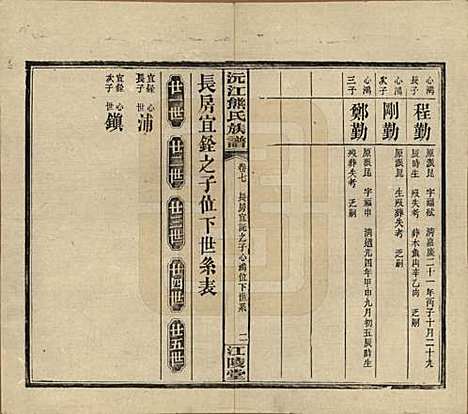 心鴻
程勤
原派昆 字福松 清嘉慶二十一年丙子十月二十九
辰時生 歿葬木魚山辛乙向 乏嗣
心鴻
次子
剛勤
原派昆 生歿葬失考 乏嗣
心鴻
三子
鄭勤
原派昆 字福申 清道光四年甲申九月初五辰時生
歿葬失考 乏嗣
沅江熊氏族譜
卷七
長房宜銓之子心鴻位下世系
二
江陵堂
長房宜銓之子位下世系表
廿一世
廿二世
廿三世
廿四世
廿五世
宜銓 心世
長子
浦
宜銓 心世
次子
鎮